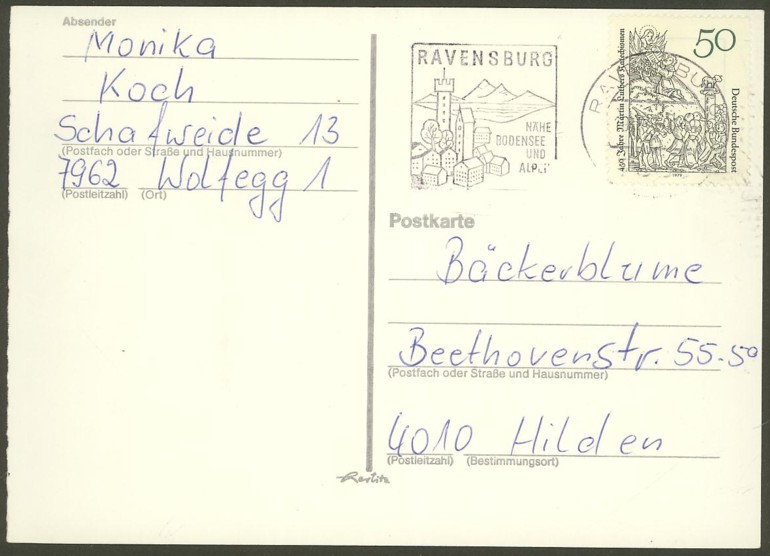 Absender
Monika
Koch
Schafweide 13
(Postfach oder Straße und Hausnummer)
7962 Wolfegg 1
(Postleitzahl) (Ort)
RAVENSBURG
NÄHE
BODENSEE
UND
ALPEN
50
Deutsche Bundespost
450 Jahre Martin Luthers Katechismen
1979
RAVENSBU
Postkarte
Bäckerblume
Beethovenstr. 55-59
(Postfach oder Straße und Hausnummer)
4010 Hilden
(Postleitzahl) (Bestimmungsort)
Herlitz